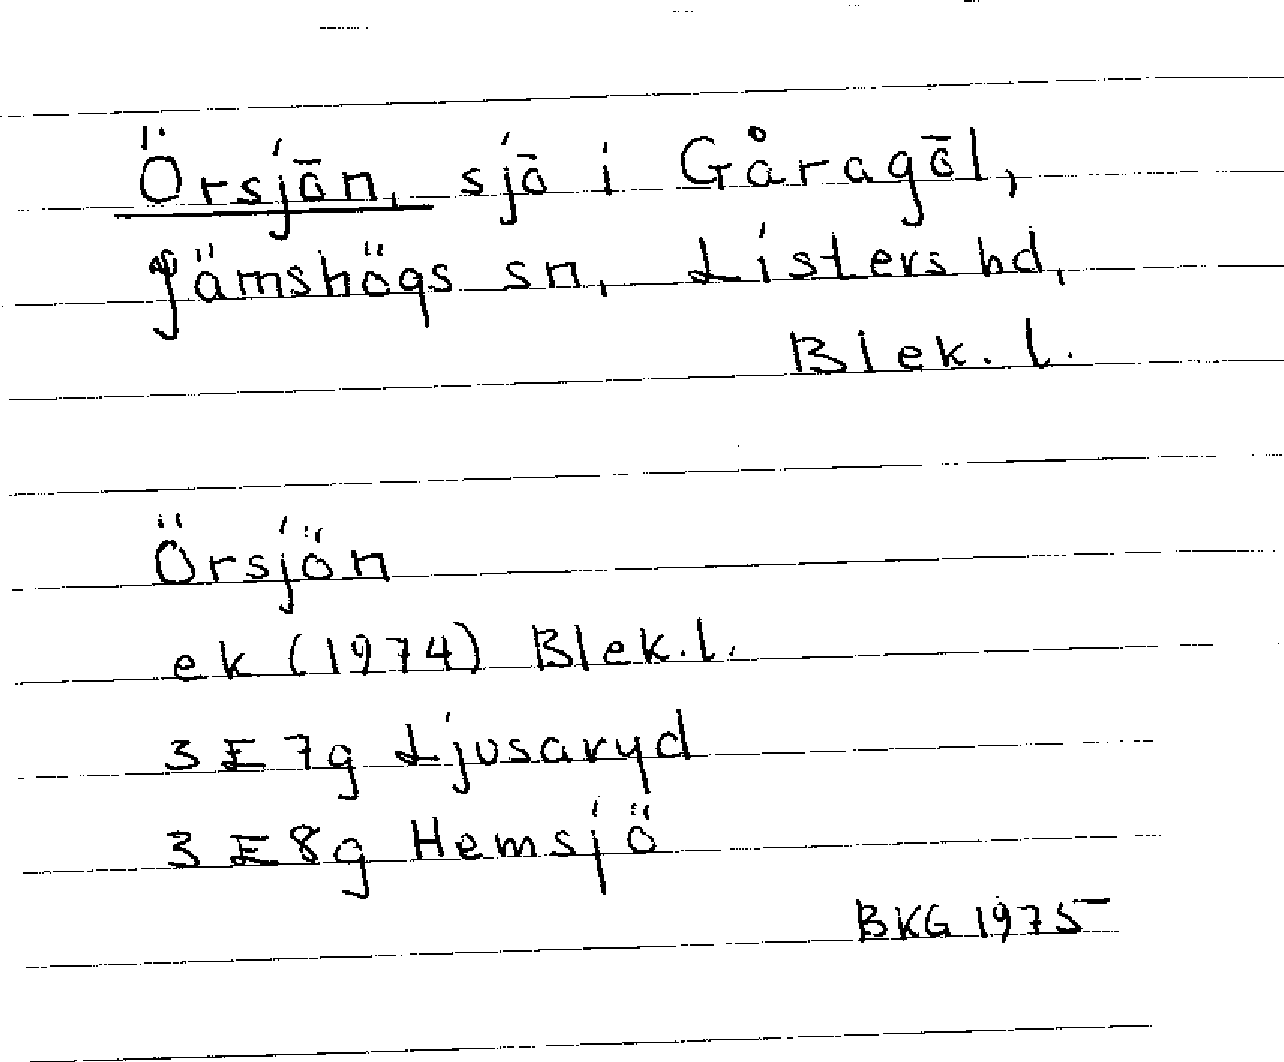 Örsjön, sjö i Gåragöl,
Jämshögs sn, Listers hd,
Blek. l.
Örsjön
ek (1974) Blek. l.
3 E 7g Ljusaryd
3 E 8g Hemsjö
BKG 1975